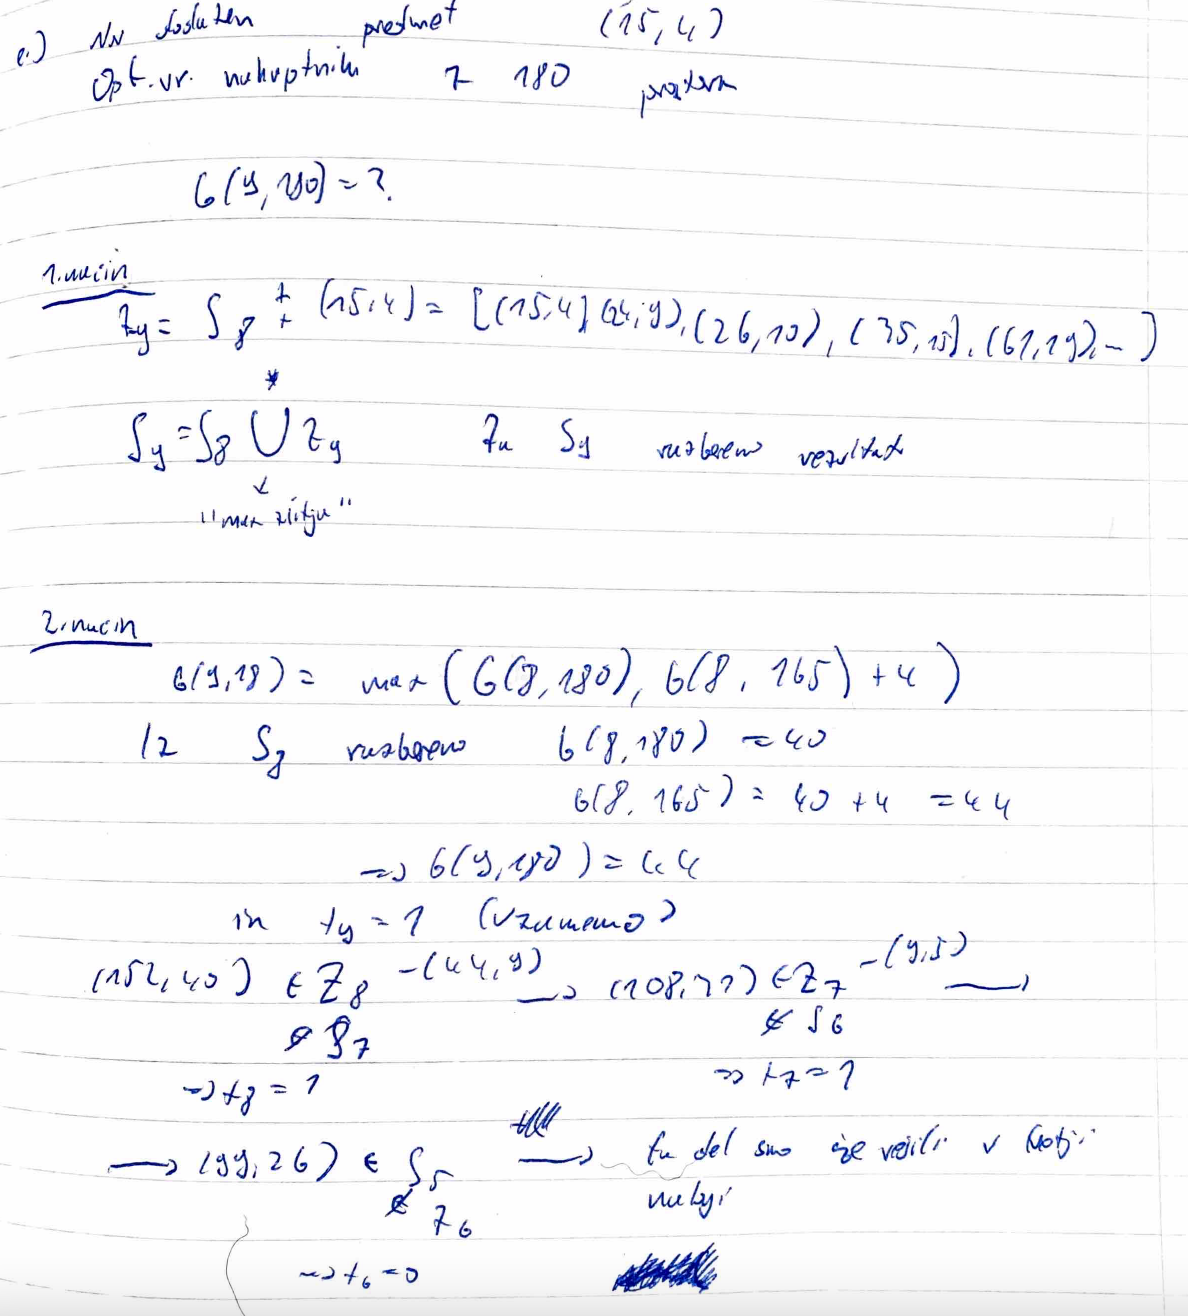 e.) Nn dodaten predmet (15,4)
Opt. vr. nahrptnika z 180 prostora
G(9,180) = ?
1. način
Z9 = S8 + (15,4) = [(15,4), (24,9), (26,10), (35,15), (61,19), ...]
S9 = S8 ∪ Z9 Za S9 razberemo rezultat
"max zlitje"
2. način
G(9,18) = max(G(8,180), G(8,165) + 4)
Iz S8 razberemo G(8,180) = 40
G(8,165) = 40 + 4 = 44
=> G(9,180) = 44
in x9 = 1 (vzamemo)
(152,40) ∈ Z8 -(44,9) → (108,31) ∈ Z7 -(9,5) →
∉ S7 ∉ S6
=> x8 = 1 => x7 = 1
→ (99,26) ∈ S5 → ta del smo že rešili v točji
∉ Z6 nalogi
=> x6 = 0